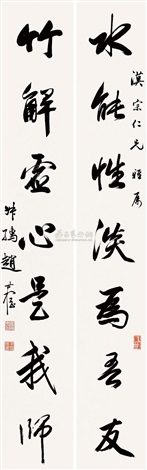 漢宗仁兄雅屬
水能性淡為吾友
竹解虛心是我師
趙